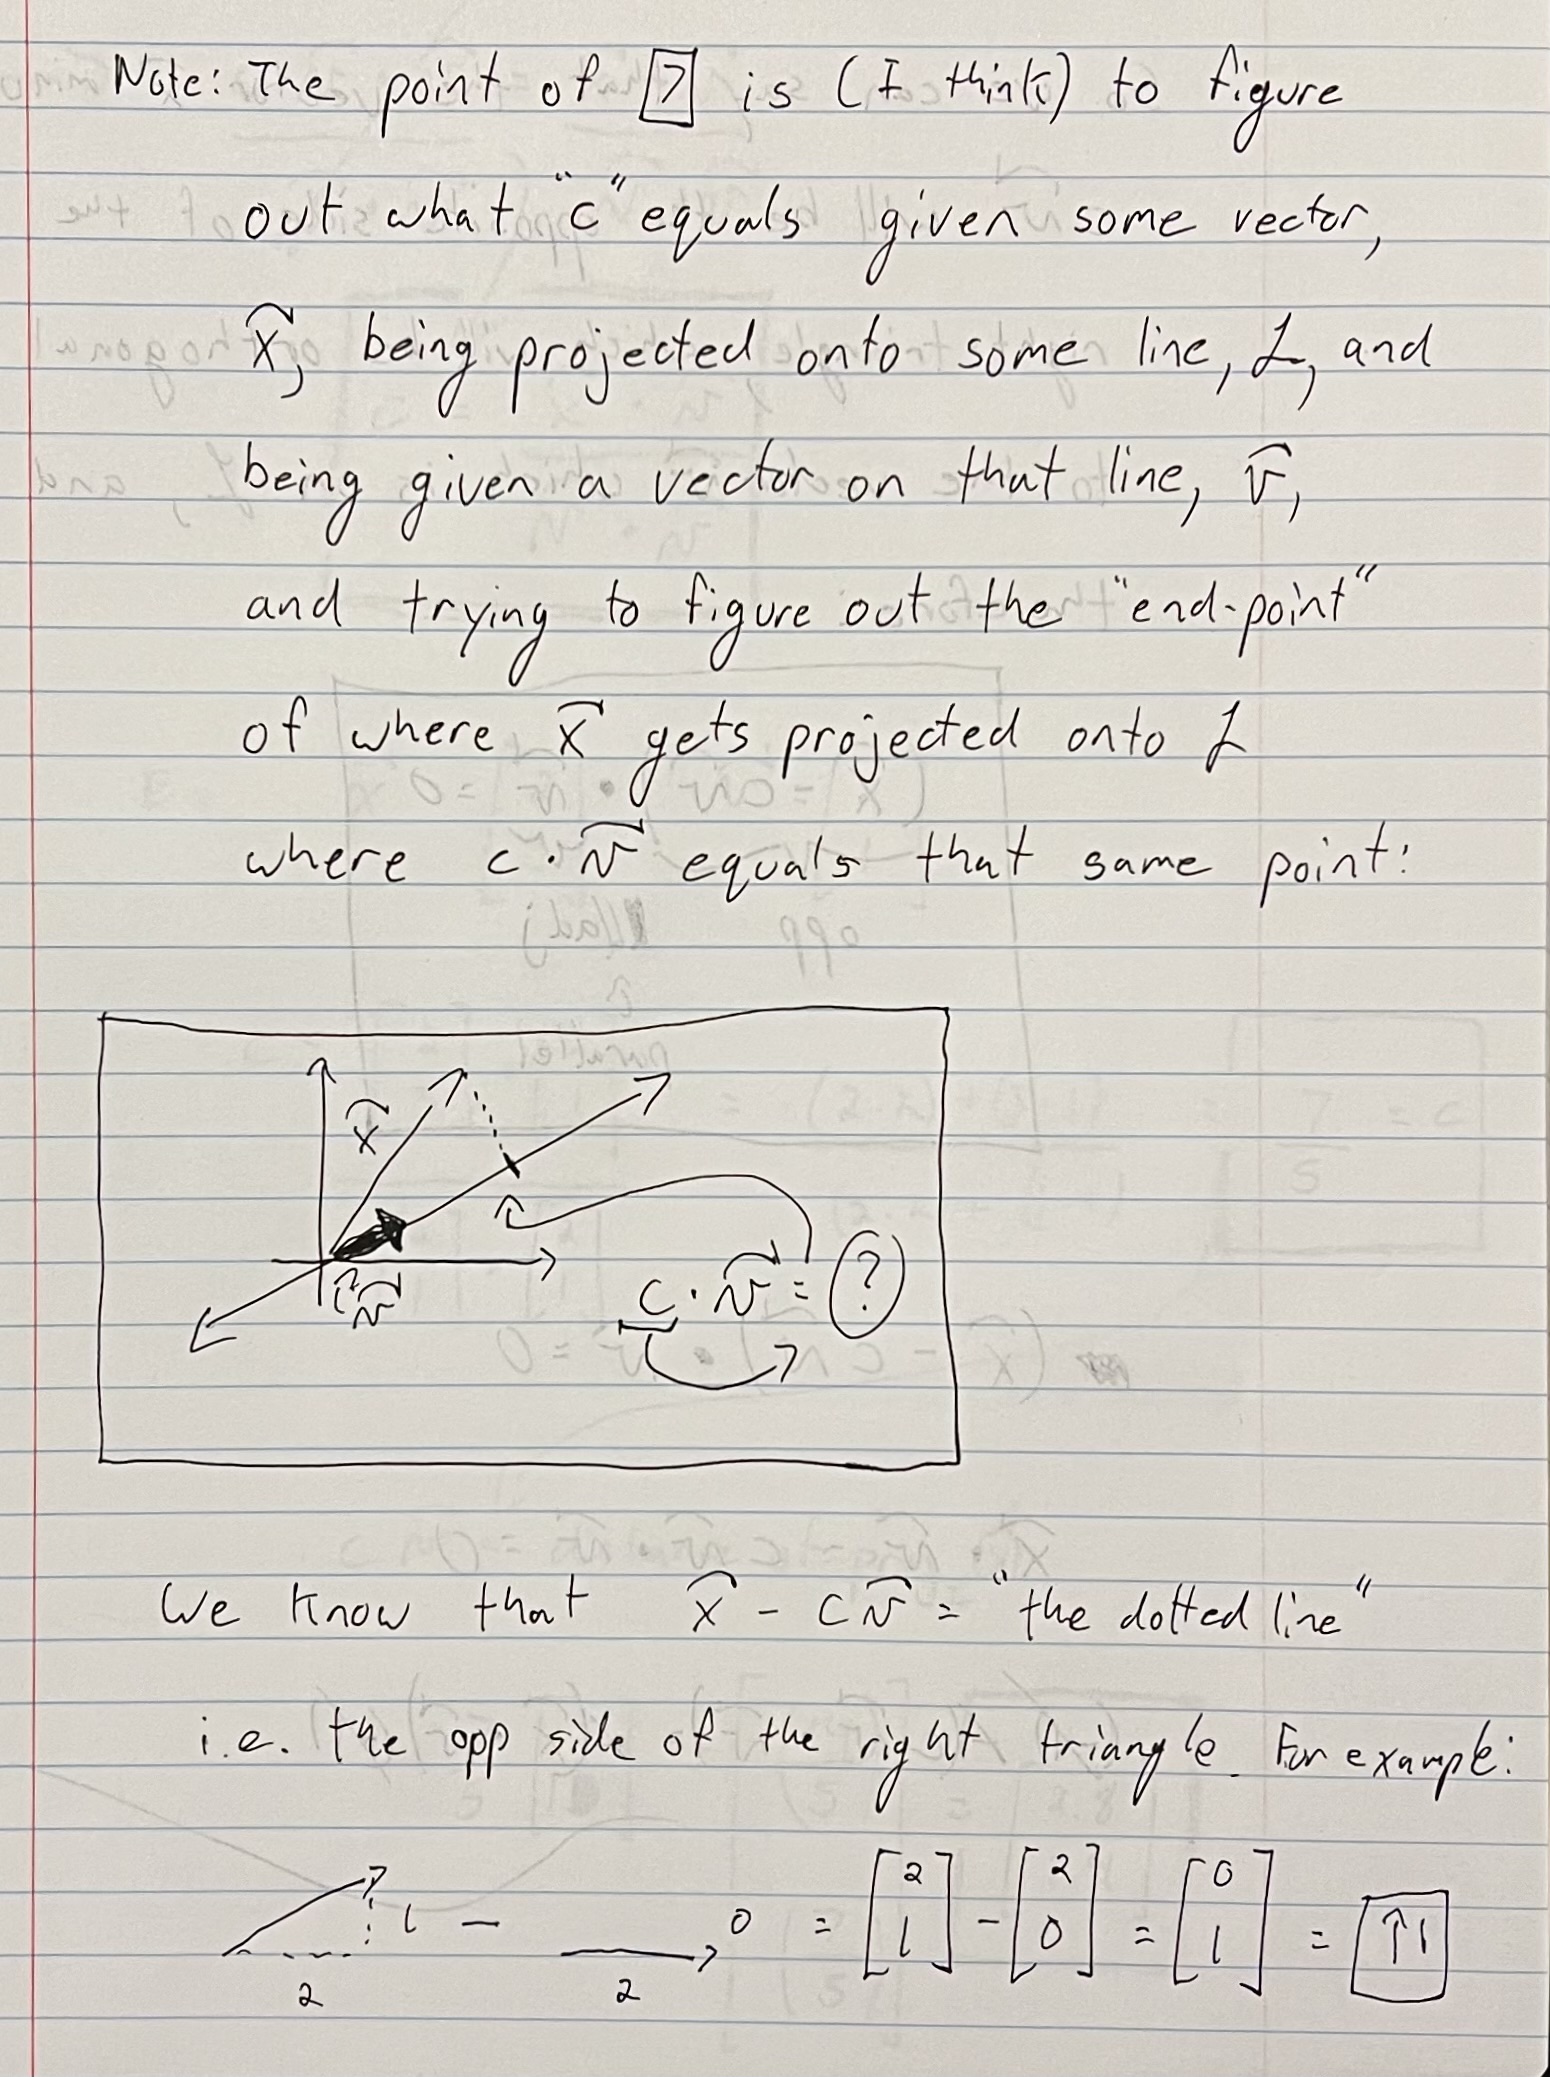 Note: The point of 7 is (I think) to figure
out what "c" equals given some vector,
x⃗, being projected onto some line, L, and
being given a vector on that line, v⃗,
and trying to figure out the "end-point"
of where x⃗ gets projected onto L
where c · v⃗ equals that same point:
x⃗
v⃗
c · v⃗ = ?
We know that x⃗ - cv⃗ = "the dotted line"
i.e. the opp side of the right triangle. For example:
1 — 0 = [2 1] - [2 0] = [0 1] = ↑1
2 2